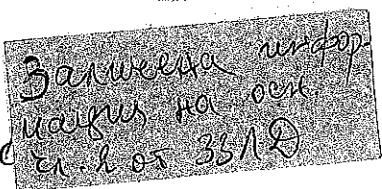 Заличена инфор-
мация на осн.
чл. 2 от ЗЗЛД